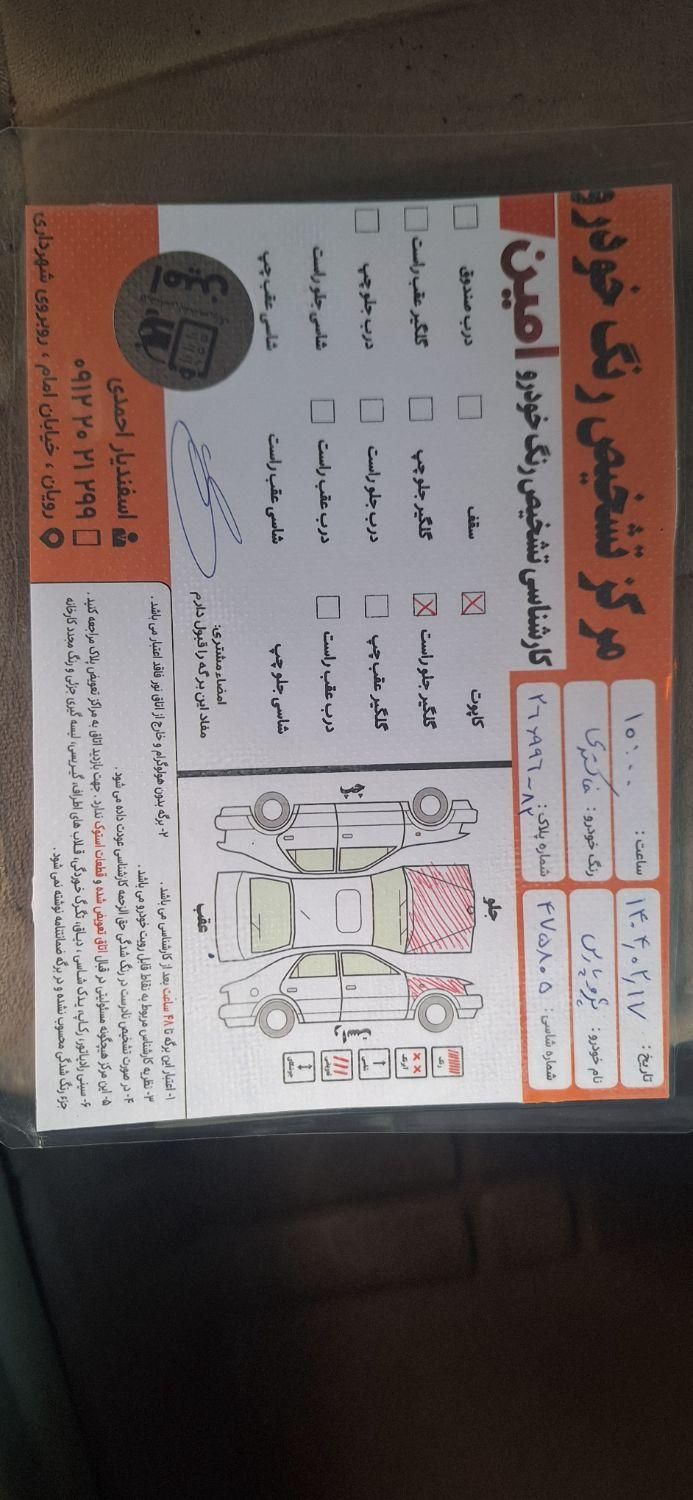 مرکز تشخیص رنگ خودرو
کارشناسی تشخیص رنگ خودرو امین
ساعت: ۱۰:۰۰
تاریخ: ۱۴۰۴,۰۲,۱۷
رنگ خودرو: خاکستری
نام خودرو: پژو پارس
شماره پلاک:
شماره شاسی: ۴۷۵۸۰۵
کاپوت
سقف
درب صندوق
گلگیر جلو راست
گلگیر جلو چپ
گلگیر عقب راست
گلگیر عقب چپ
درب جلو راست
درب جلو چپ
درب عقب راست
درب عقب راست
شاسی جلو راست
شاسی جلو چپ
شاسی عقب راست
شاسی عقب چپ
امضاء مشتری:
مفاد این برگه را قبول دارم
جلو
عقب
رنگ
۱- اعتبار این برگه تا ۴۸ ساعت بعد از کارشناسی می باشد.
۲- برگه بدون هولوگرام و خارج از اتاق نور فاقد اعتبار می باشد.
۳- نظریه کارشناس مربوط به نقاط قابل رویت خودرو می باشد.
۴- در صورت تشخیص نادرست در رنگ شدگی حق الزحمه کارشناسی عودت داده می شود.
۵- این مرکز هیچگونه مسئولیتی در قبال اتاق تعویض شده و قطعات استوک ندارد. جهت بازدید اتاق به مراکز تعویض پلاک مراجعه کنید.
۶- سینی رادیاتور، رکاب، یدک شاسی، دیاق، تگرگ خوردگی، قلاب های اطراف، گیریسی، لیسه گیری جزئی و رنگ مجدد کارخانه
جزء رنگ شدگی محسوب نشده و در برگه ضمانتنامه نوشته نمی شود.
اسفندیار احمدی
۰۹۱۲ ۲۰ ۲۱ ۲۹۹
رویان، خیابان امام، روبروی شهرداری